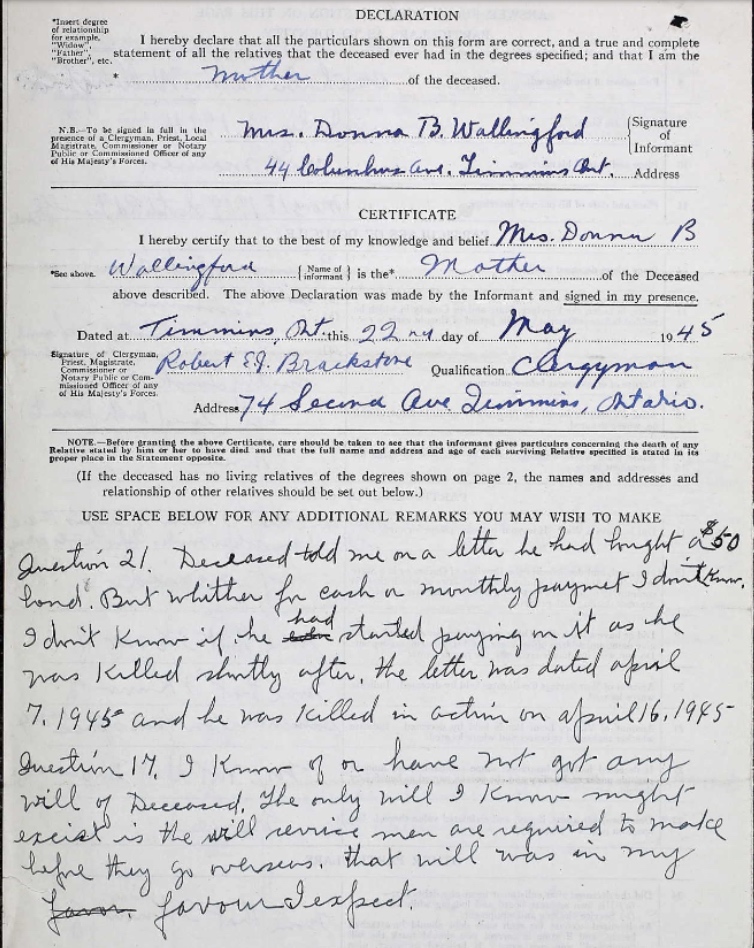 DECLARATION
*Insert degree
of relationship
for example,
"Widow,"
"Father,"
"Brother", etc.
I hereby declare that all the particulars shown on this form are correct, and a true and complete
statement of all the relatives that the deceased ever had in the degrees specified; and that I am the
* mother of the deceased.
N.B.—To be signed in full in the
presence of a Clergyman, Priest, Local
Magistrate, Commissioner or Notary
Public or Commissioned Officer of any
of His Majesty's Forces.
Mrs. Donna B. Wallingford { Signature of Informant
44 Columbus Ave. Timmins Ont. Address
CERTIFICATE
I hereby certify that to the best of my knowledge and belief Mrs. Donna B
*See above. Wallingford { Name of informant } is the* Mother of the Deceased
above described. The above Declaration was made by the Informant and signed in my presence.
Dated at Timmins, Ont. this 22nd day of May 1945
Signature of Clergyman,
Priest, Magistrate,
Commissioner or
Notary Public or Com-
missioned Officer of any
of His Majesty's Forces.
Robert E.J. Brackstone Qualification Clergyman
Address 74 Second Ave Timmins, Ontario.
NOTE.—Before granting the above Certificate, care should be taken to see that the informant gives particulars concerning the death of any
Relative stated by him or her to have died and that the full name and address and age of each surviving Relative specified is stated in its
proper place in the Statement opposite.
(If the deceased has no living relatives of the degrees shown on page 2, the names and addresses and
relationship of other relatives should be set out below.)
USE SPACE BELOW FOR ANY ADDITIONAL REMARKS YOU MAY WISH TO MAKE
Question 21. Deceased told me on a letter he had bought a $50
bond. But whither for cash or monthly paymet I don't know.
I don't know if he had started paying on it as he
was killed shortly after, the letter was dated april
7, 1945 and he was killed in action on april 16, 1945
Question 17. I know of or have not got any
will of Deceased. The only will I know might
excist is the will service men are required to make
before they go overseas. that will was in my
favor. favour I expect.